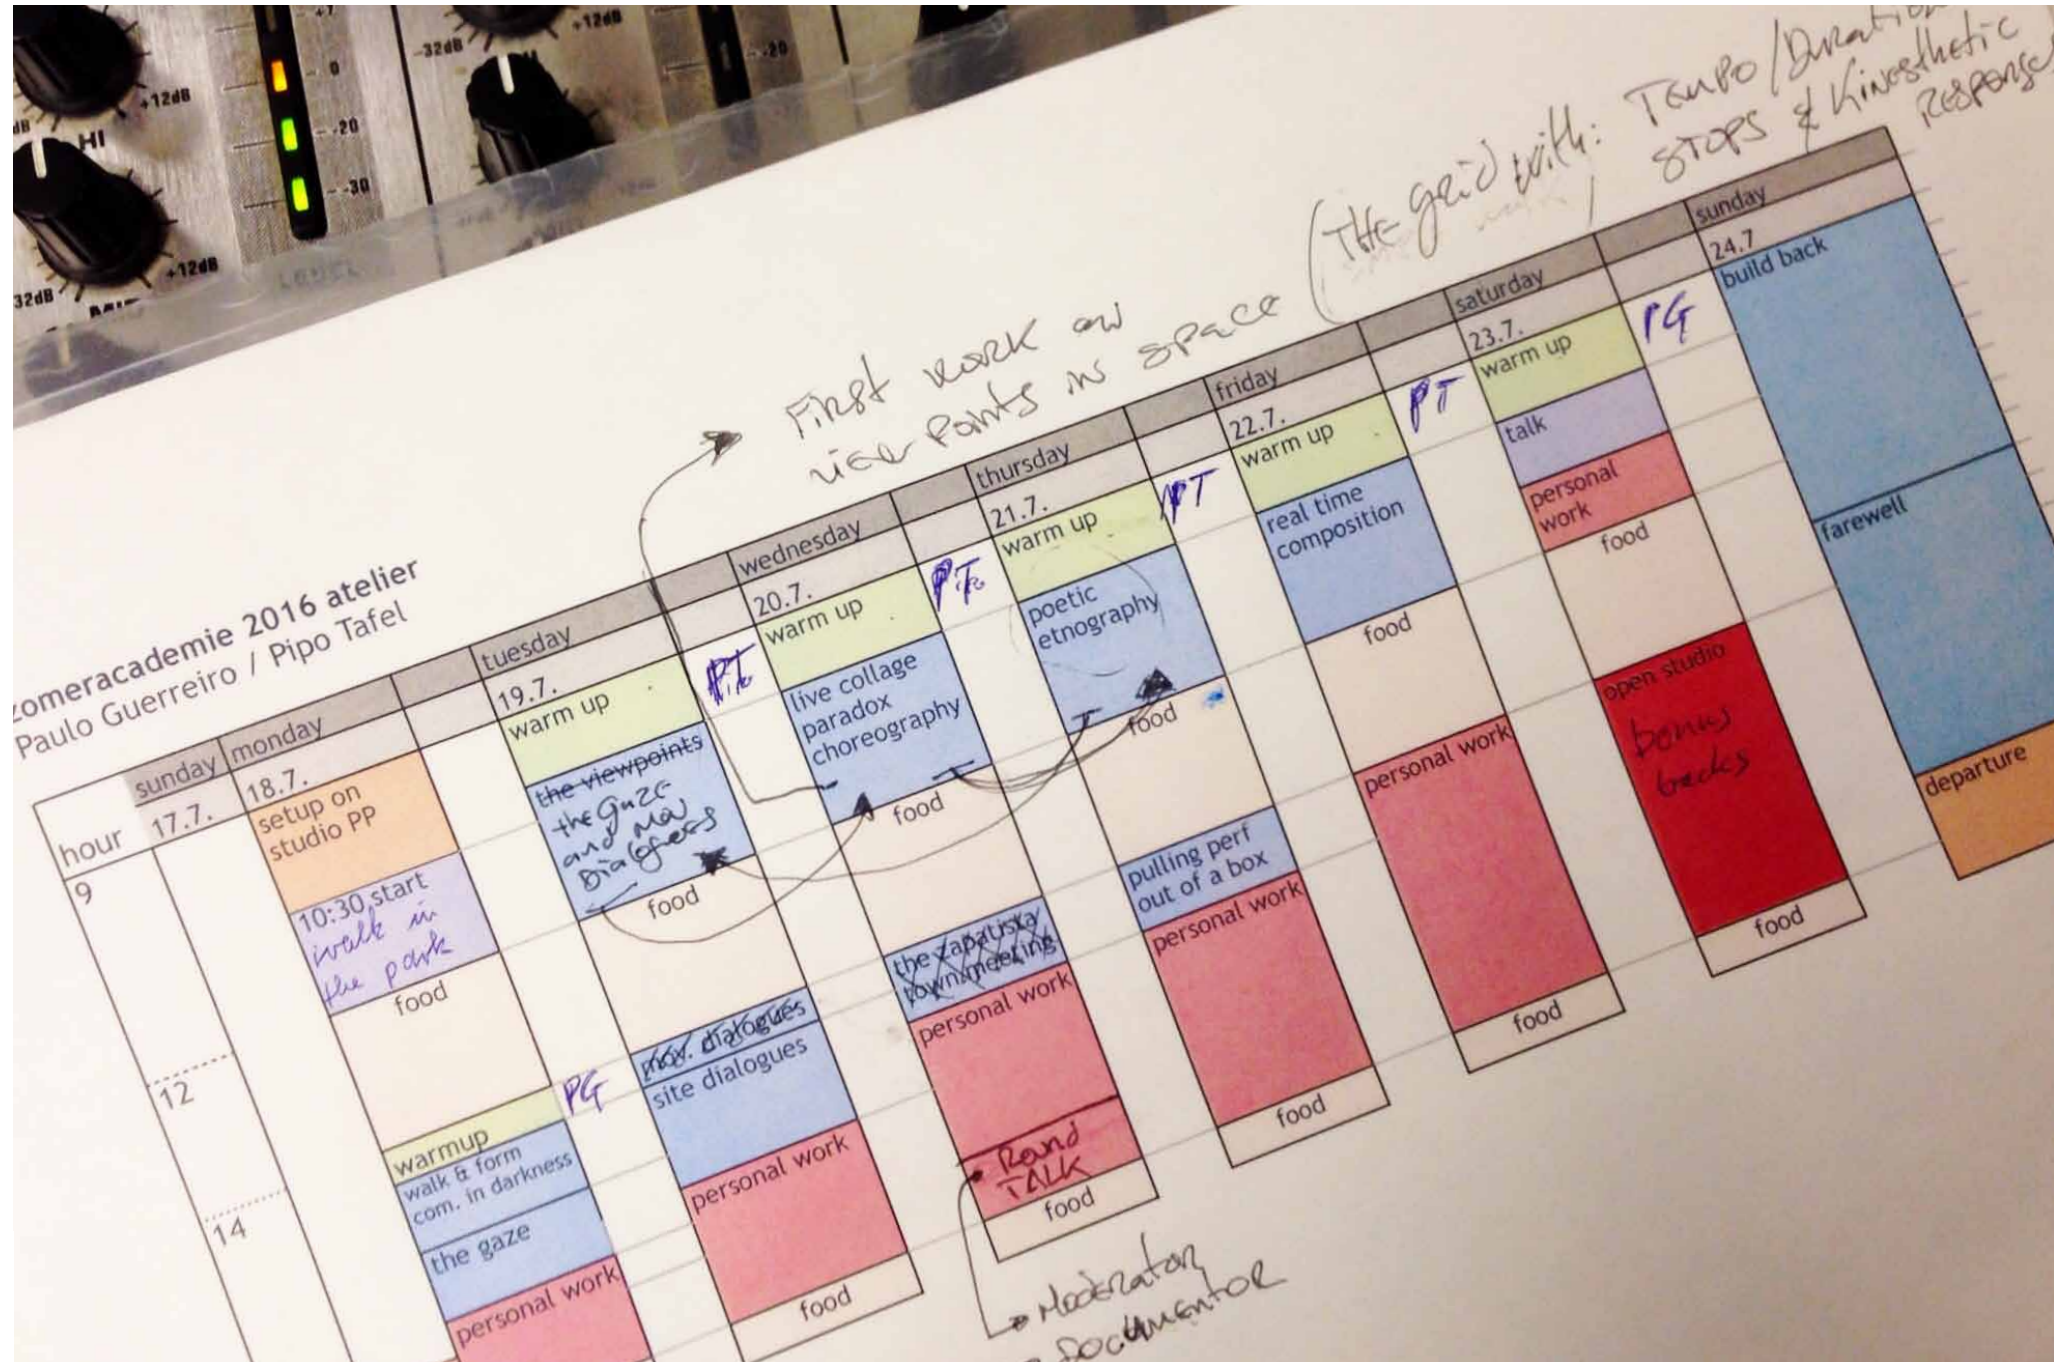 +7
0
-20
-30
+12dB
HI
dB
+12dB
32dB
MID
LEVEL
-32dB
+12dB
-20
zomeracademie 2016 atelier
Paulo Guerreiro / Pipo Tafel
First work on
view points in space
(The grid with: Tempo/Duration
stops & Kinesthetic
Response
hour
9
12
14
sunday
17.7.
monday
18.7.
setup on
studio PP
10:30 start
walk in
the park
food
warmup
PG
walk & form
com. in darkness
the gaze
personal work
tuesday
19.7.
warm up
the viewpoints
the gaze
and mov
dialogues
food
mov. dialogues
site dialogues
personal work
food
wednesday
20.7.
warm up
live collage
paradox
choreography
food
the zapatista
town meeting
personal work
Round
TALK
food
Moderator
Documentor
thursday
21.7.
warm up
PT
poetic
etnography
food
pulling perf
out of a box
personal work
food
friday
22.7.
warm up
PT
real time
composition
food
personal work
food
saturday
23.7.
warm up
PG
talk
personal
work
food
open studio
bonus
tracks
food
sunday
24.7
build back
farewell
departure